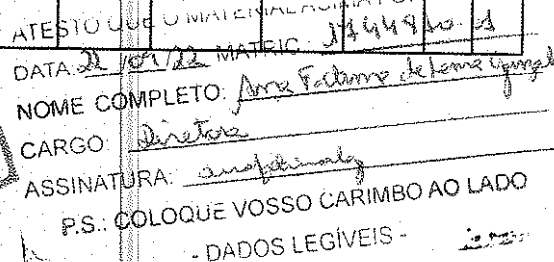 ATESTO QUE O MATERIAL ACIMA
DATA: 22 /09/22 MATRIC: 1744810-1
NOME COMPLETO: Ana Fatima de Lema
CARGO: Diretora
ASSINATURA:
P.S.: COLOQUE VOSSO CARIMBO AO LADO
- DADOS LEGÍVEIS -